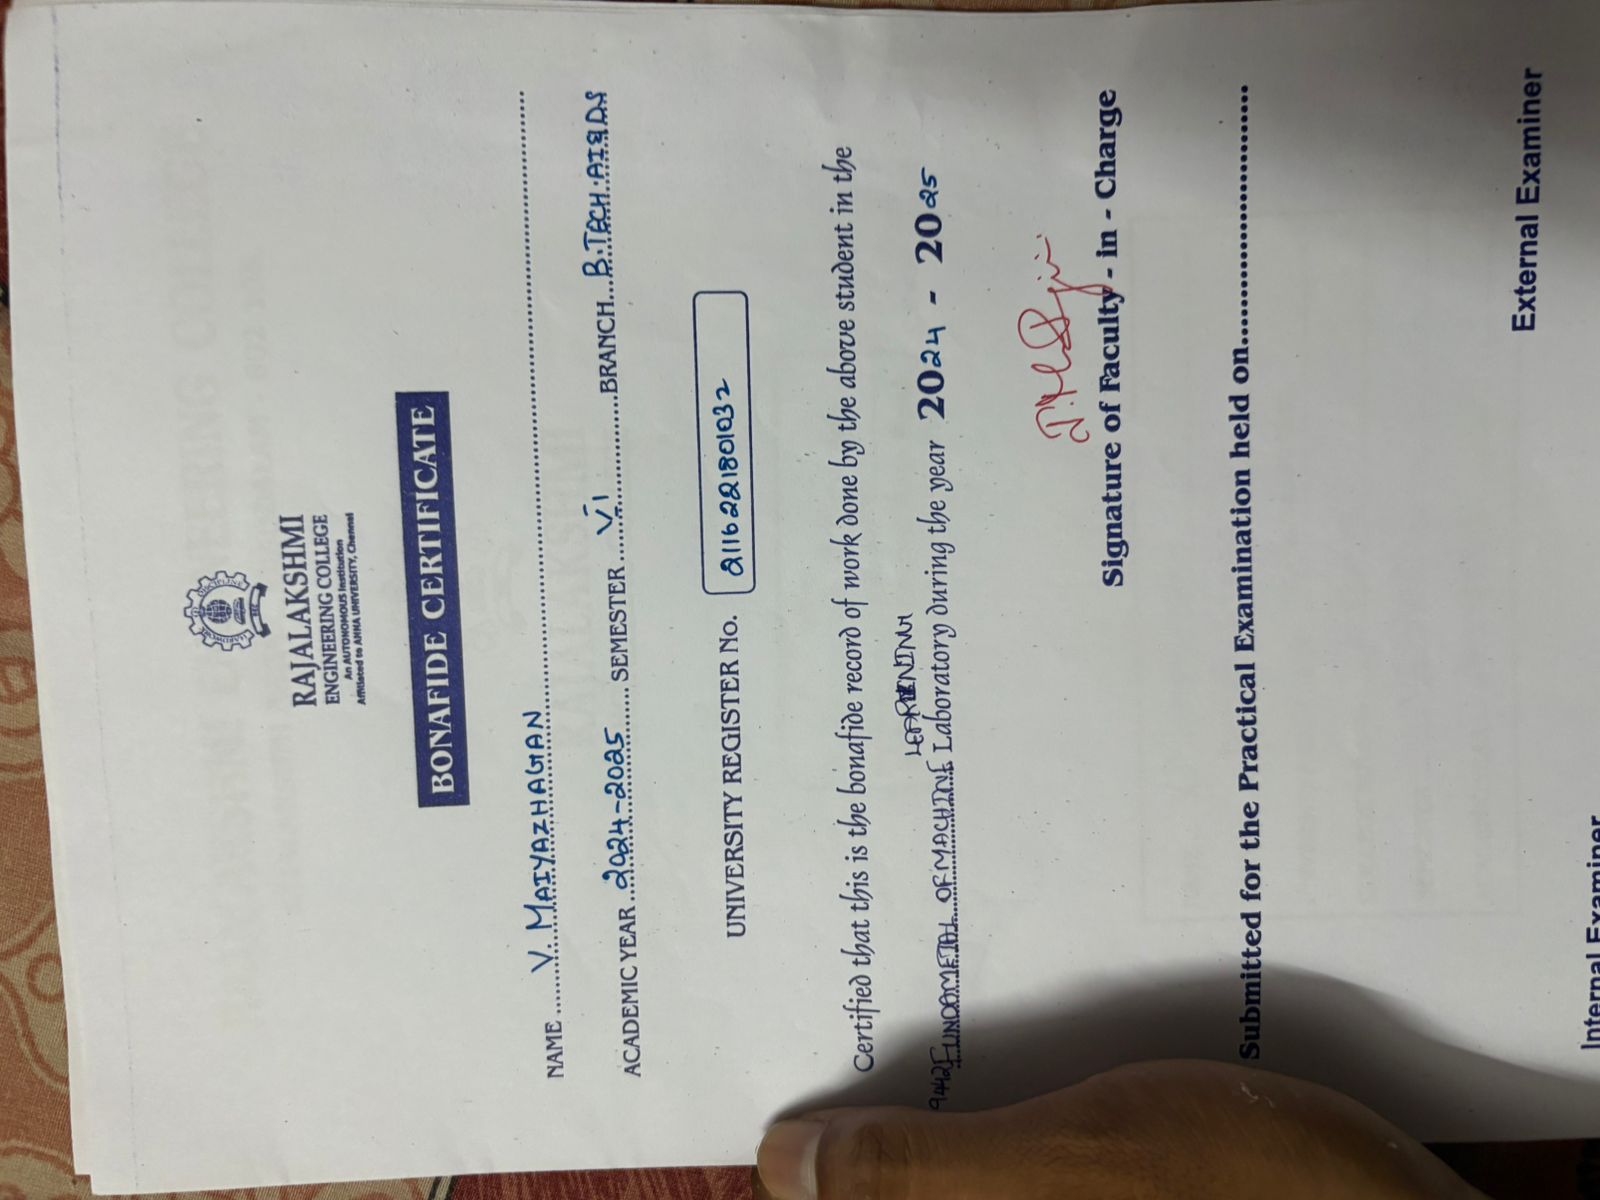 RAJALAKSHMI
ENGINEERING COLLEGE
An AUTONOMOUS Institution
Affiliated to ANNA UNIVERSITY, Chennai
BONAFIDE CERTIFICATE
NAME ..... V. MAIYAZHAGAN .....
ACADEMIC YEAR ... 2024-2025 ... SEMESTER ... VI ... BRANCH ... B.TECH.AI&DS
UNIVERSITY REGISTER No. 2116221801032
Certified that this is the bonafide record of work done by the above student in the
LEARNING
FUNDAMETAL OF MACHINE Laboratory during the year 2024 - 2025
Signature of Faculty - in - Charge
Submitted for the Practical Examination held on...............
External Examiner
Internal Examiner